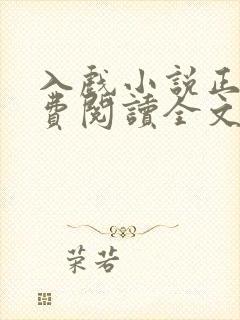 入戲小說正
費閱讀全文
荣若